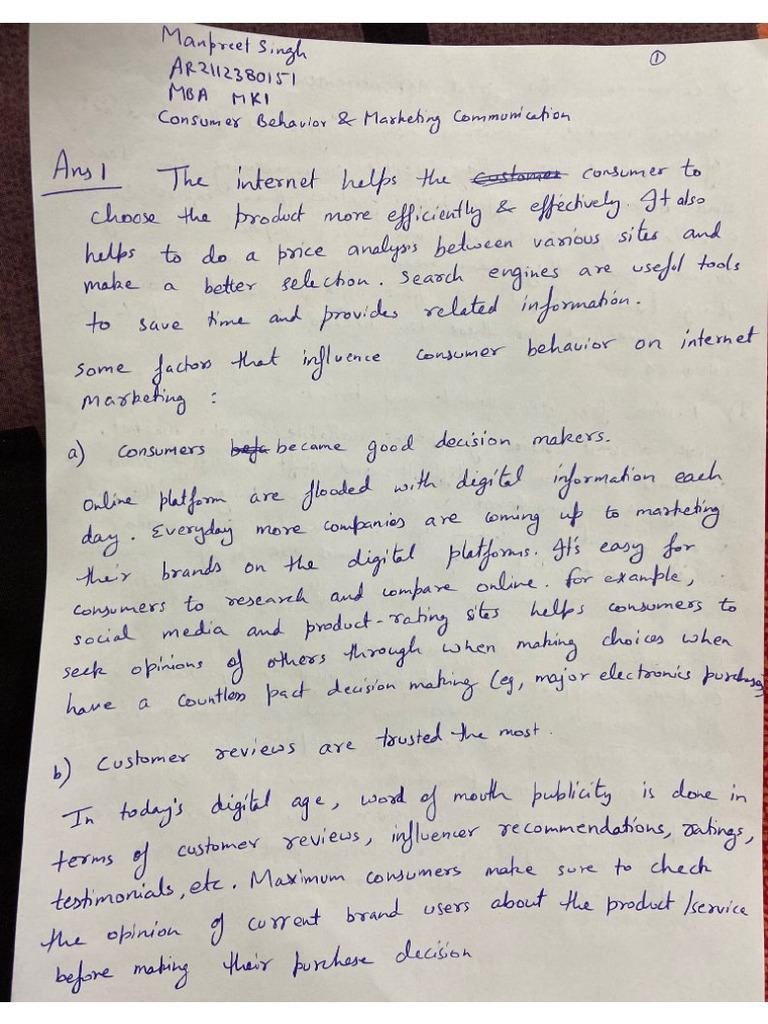 Manpreet Singh
①
AR2112380151
MBA MK1
Consumer Behavior & Marketing Communication
Ans 1 The internet helps the customer consumer to
choose the product more efficiently & effectively. It also
helps to do a price analysis between various sites and
make a better selection. Search engines are useful tools
to save time and provides related information.
Some factors that influence consumer behavior on internet
marketing :
a) Consumers befa became good decision makers.
Online platform are flooded with digital information each
day. Everyday more companies are coming up to marketing
their brands on the digital platforms. It's easy for
consumers to research and compare online. For example,
social media and product-rating sites helps consumers to
seek opinions of others through when making choices when
have a countless pact decision making (eg, major electronics purchases
b) Customer reviews are trusted the most.
In today's digital age, word of mouth publicity is done in
terms of customer reviews, influencer recommendations, ratings,
testimonials, etc. Maximum consumers make sure to check
the opinion of current brand users about the product/service
before making their purchase decision